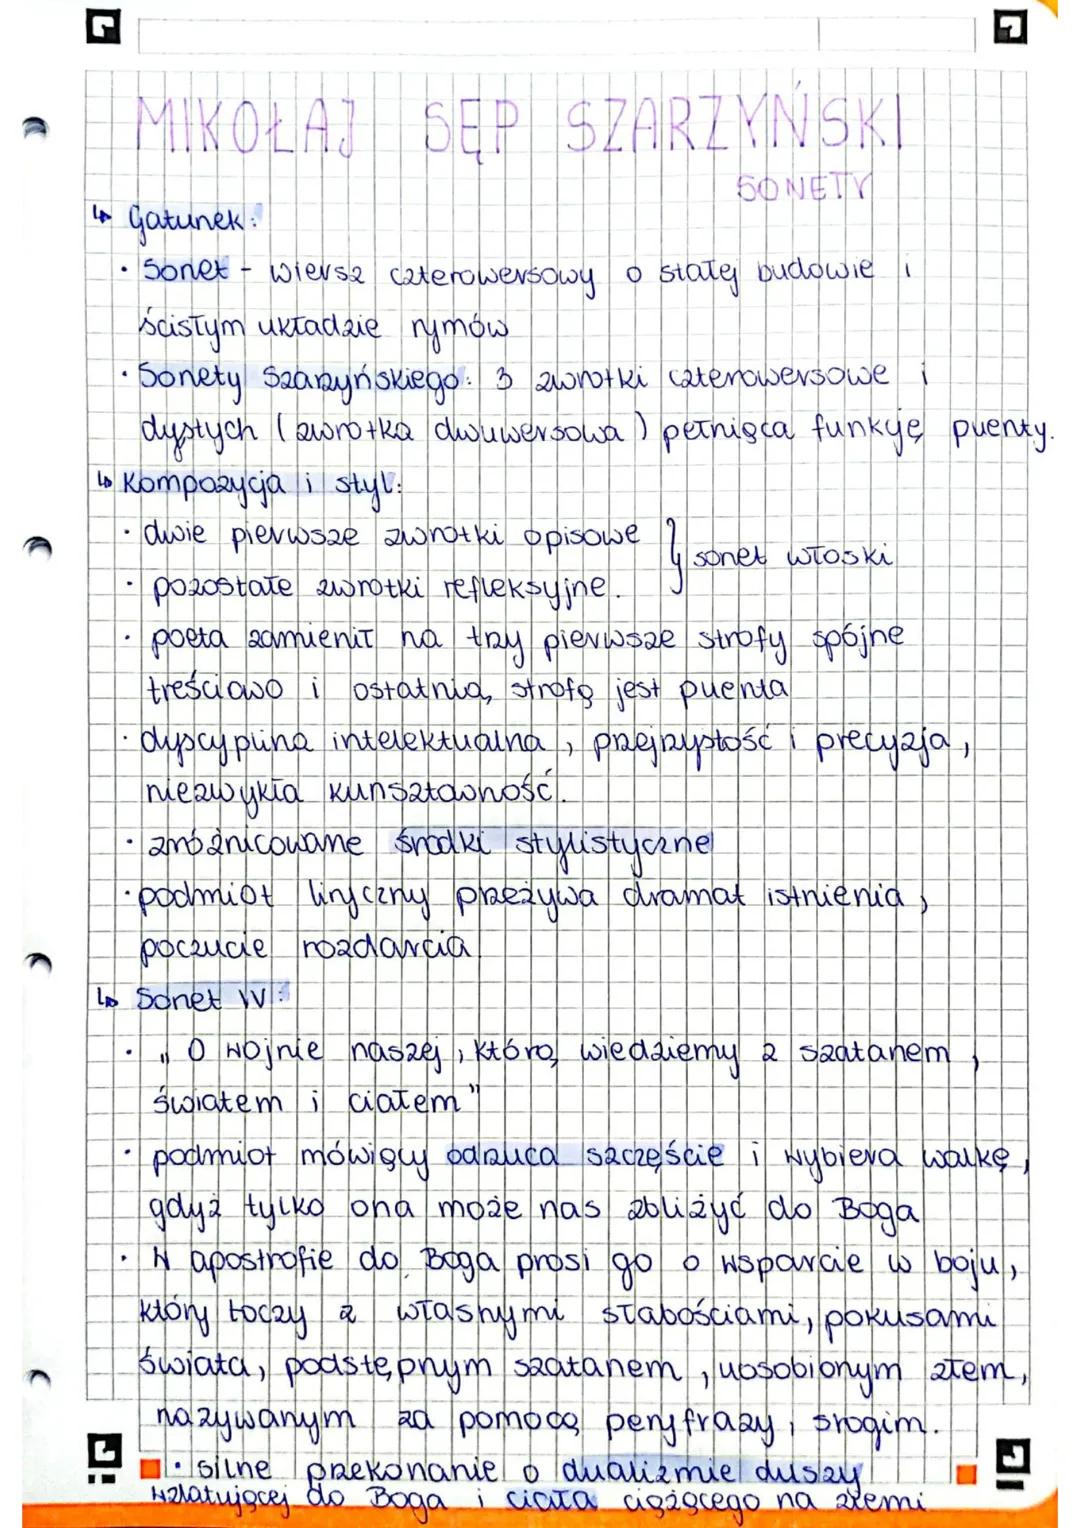 MIKOŁAJ SĘP SZARZYŃSKI
SONETY
↳ Gatunek:
· Sonet - wiersz czterowersowy o stałej budowie i
ścisłym układzie rymów
· Sonety Szarzyńskiego: 3 zwrotki czterowersowe i
dystych (zwrotka dwuwersowa) pełniąca funkcję puenty.
↳ Kompozycja i styl:
· dwie pierwsze zwrotki opisowe } sonet włoski
· pozostałe zwrotki refleksyjne.
· poeta zamienił na trzy pierwsze strofy spójne
treściowo i ostatnią strofą jest puenta
· dyscyplina intelektualna, przejrzystość i precyzja,
niezwykła kunsztowność.
· zróżnicowane środki stylistyczne
· podmiot liryczny przeżywa dramat istnienia,
poczucie rozdarcia
↳ Sonet IV:
· „O wojnie naszej, którą wiedziemy z szatanem,
światem i ciałem"
· podmiot mówiący odrzuca szczęście i wybiera walkę,
gdyż tylko ona może nas zbliżyć do Boga
· W apostrofie do Boga prosi go o wsparcie w boju,
który toczy z własnymi słabościami, pokusami
świata, podstępnym szatanem, uosobionym złem,
nazywanym za pomocą peryfrazy, srogim.
· silne przekonanie o dualizmie duszy
wzlatującej do Boga i ciała ciążącego na ziemi